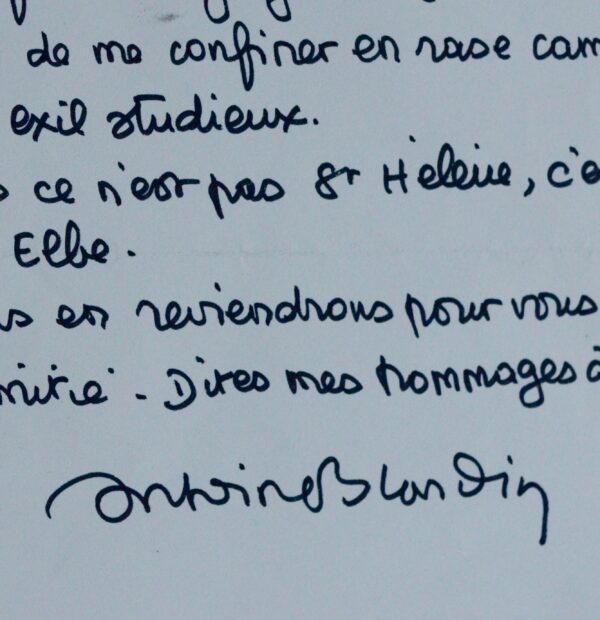 de me confiner en rase cam
exil studieux.
ce n'est pas St Hélène, c'e
Elbe.
s en reviendrons pour vous
mitié. Dites mes hommages à
Antoine Blondin